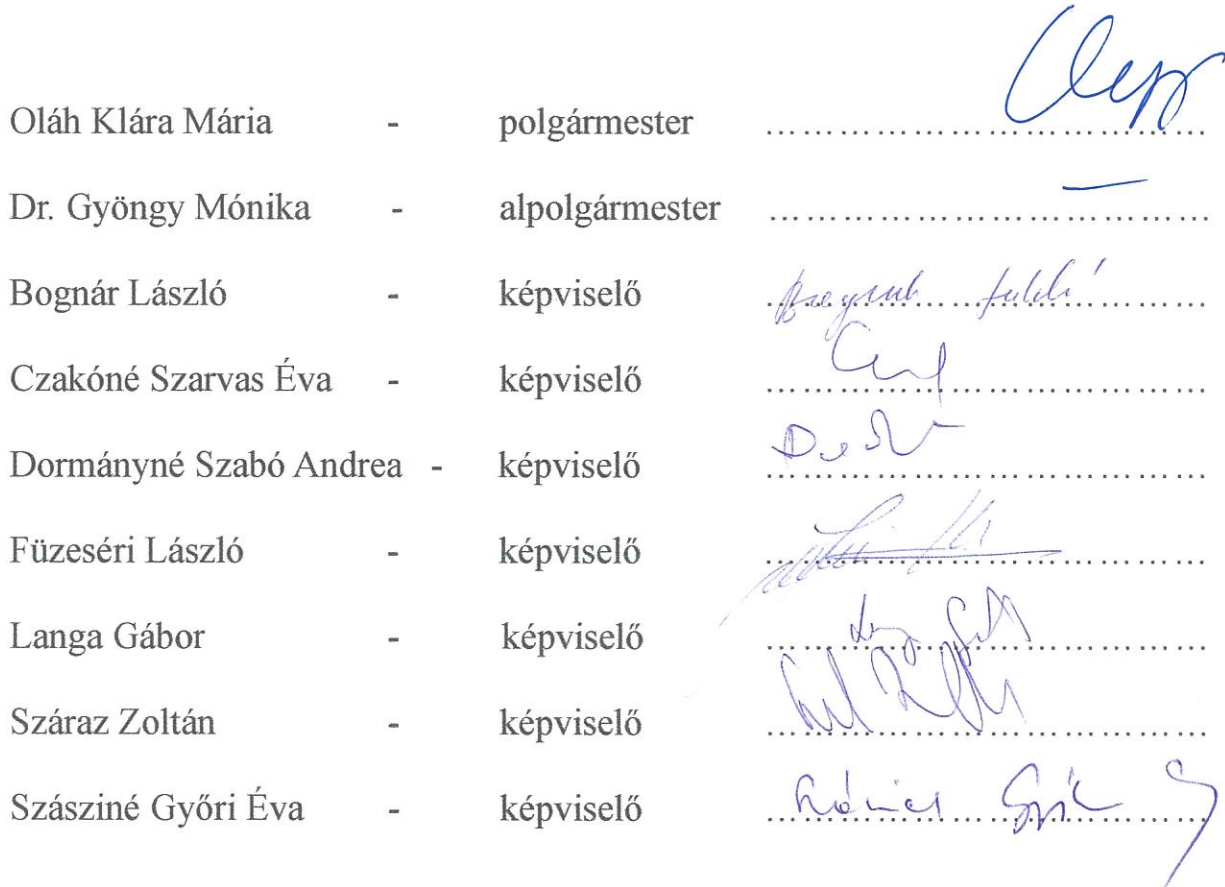 Oláh Klára Mária - polgármester ........................................
Dr. Gyöngy Mónika - alpolgármester ........................................
Bognár László - képviselő ........................................
Czakóné Szarvas Éva - képviselő ........................................
Dormányné Szabó Andrea - képviselő ........................................
Füzeséri László - képviselő ........................................
Langa Gábor - képviselő ........................................
Száraz Zoltán - képviselő ........................................
Szásziné Győri Éva - képviselő ........................................